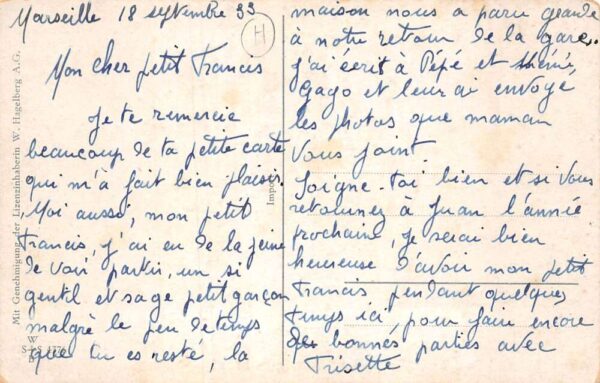 Marseille 18 septembre 33
H
Mon cher petit Francis
Je te remercie
beaucoup de ta petite carte
qui m'a fait bien plaisir.
Moi aussi, mon petit
Francis, j'ai eu de la peine
de voir partir, un si
gentil et sage petit garçon
malgré le peu de temps
que tu es resté, la
maison nous a paru grande
à notre retour de la gare.
J'ai écrit à Pépé et
Gago et leur ai envoyé
les photos que maman
vous joint.
Soigne-toi bien et si vous
retournez à Juan l'année
prochaine, je serai bien
heureuse d'avoir mon petit
Francis pendant quelques
temps ici, pour faire encore
de bonnes parties avec
Trisette
Mit Genehmigung der Lizenzinhaberin W. Hagelberg A.G.
Impo
W
S+S
B